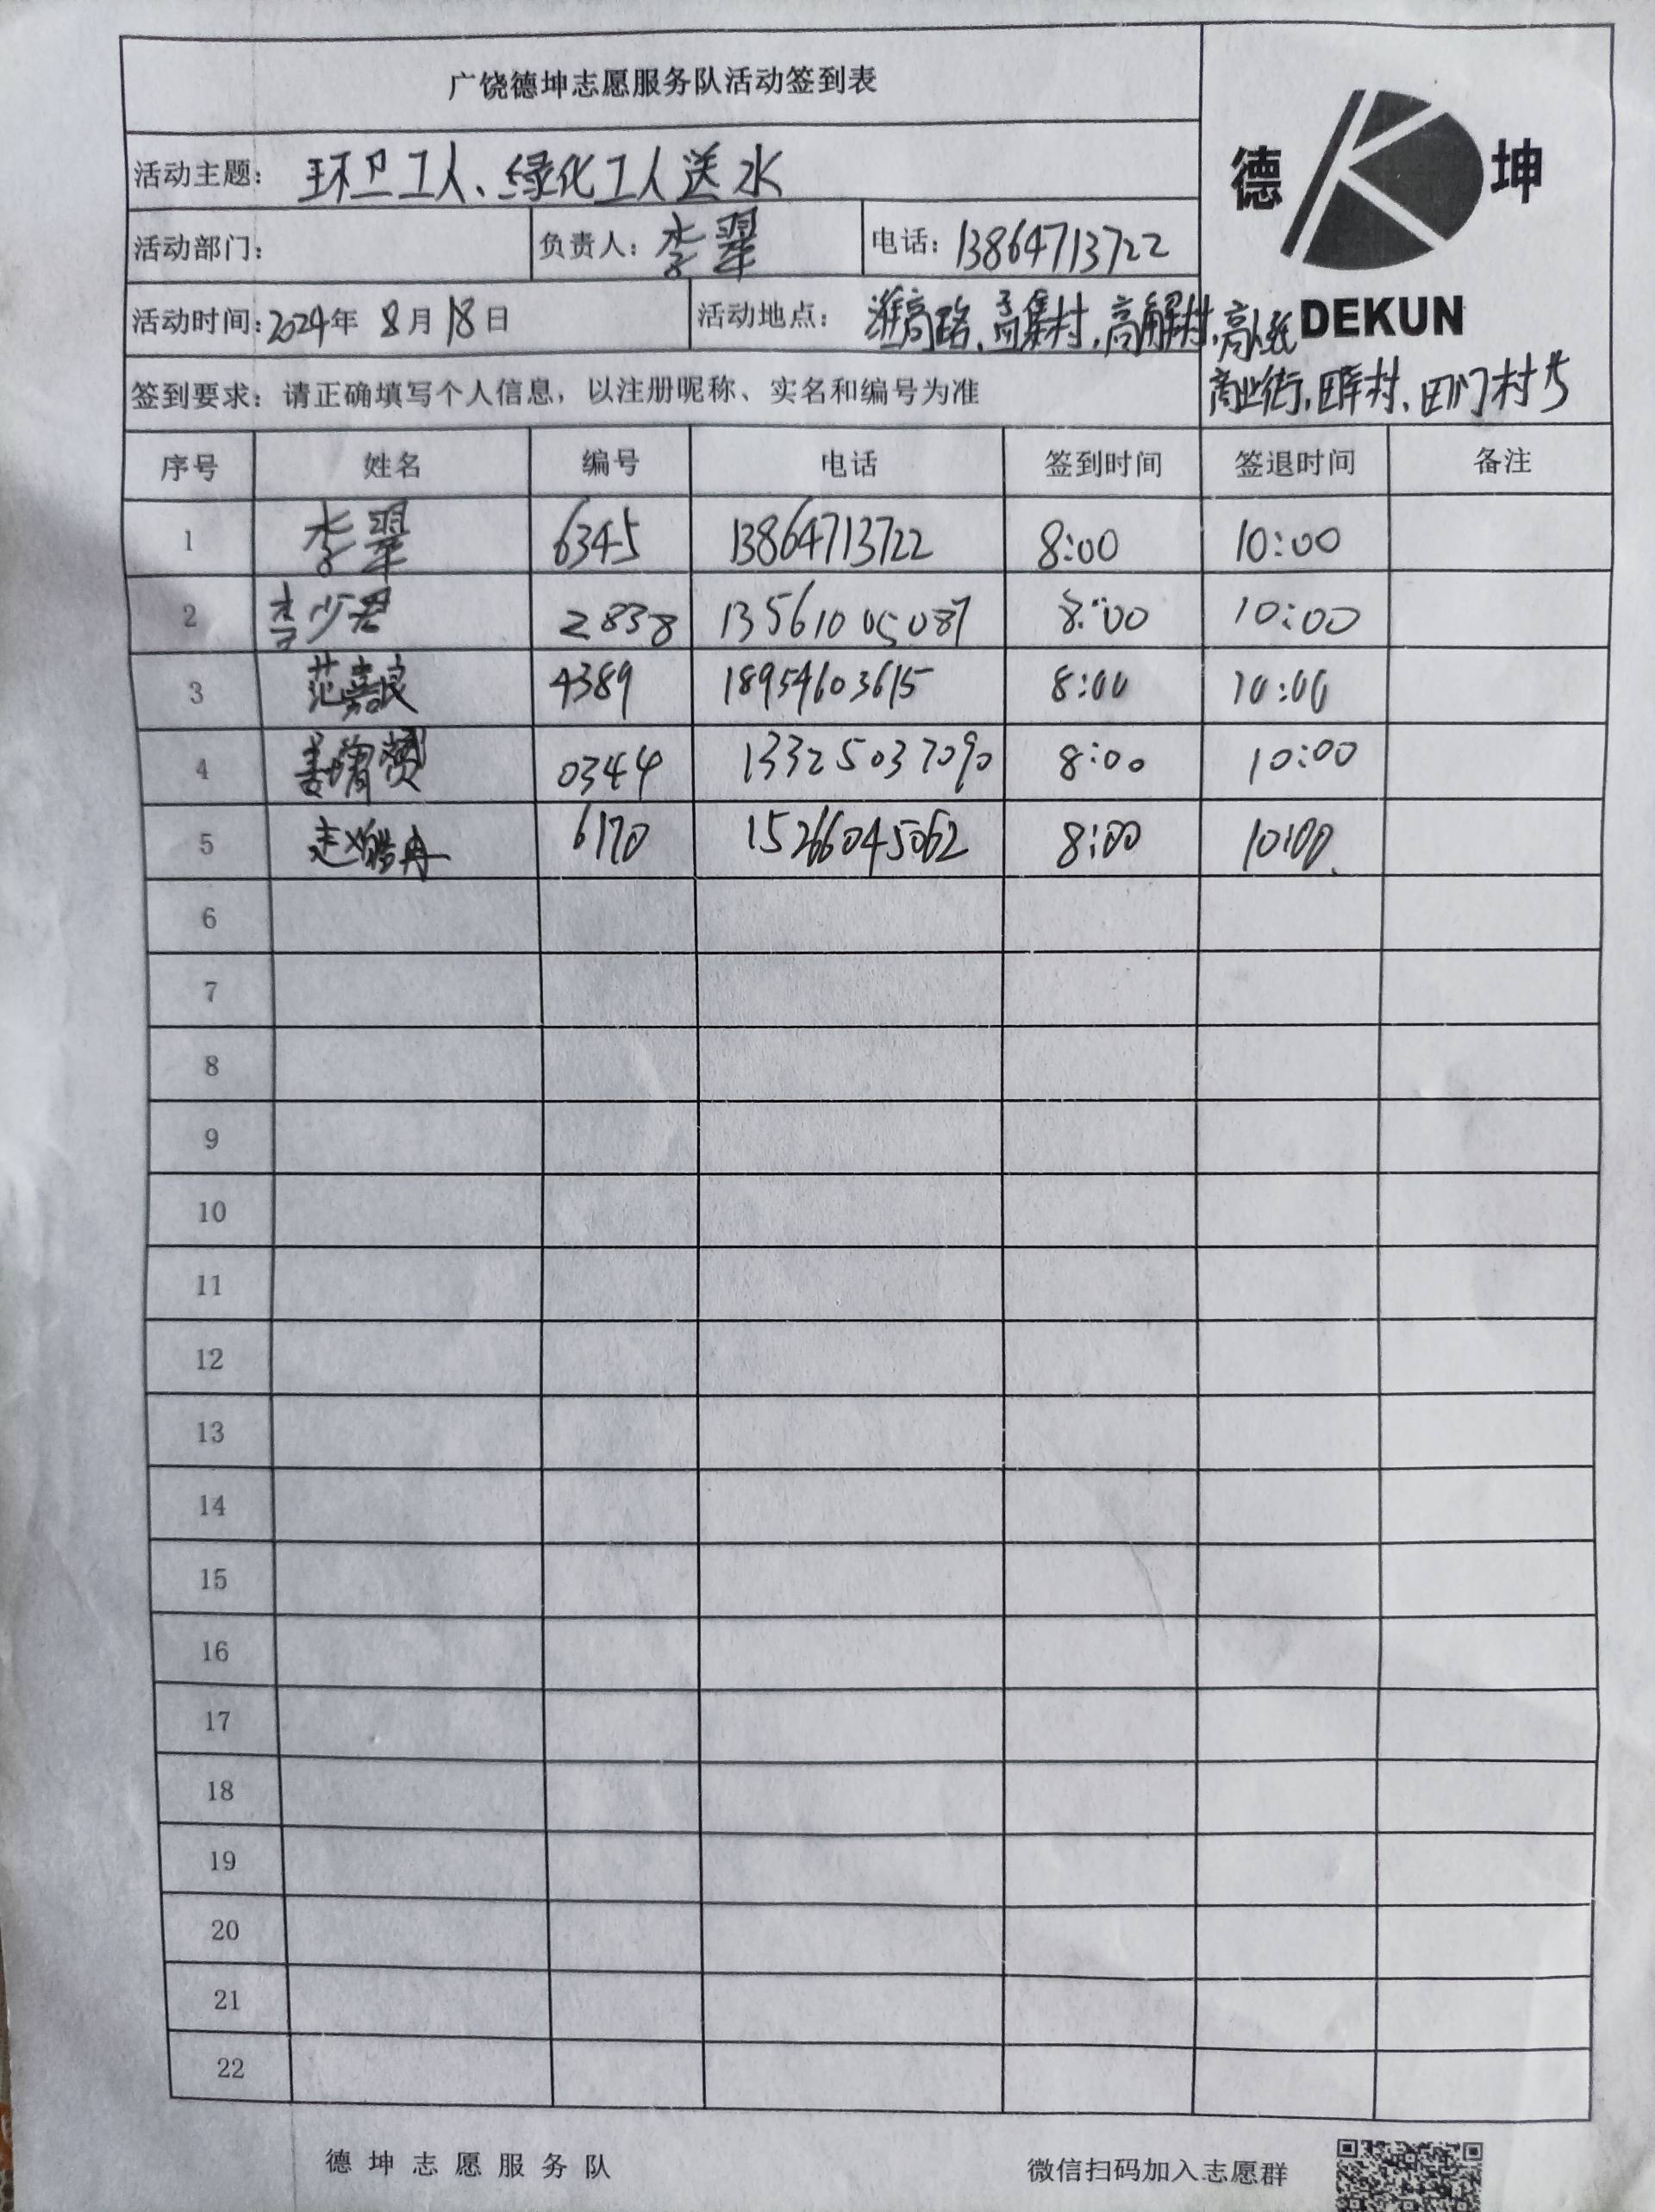 广饶德坤志愿服务队活动签到表
德 坤
活动主题： 环卫工人、绿化工人送水
活动部门： 负责人：李翠 电话：13864713722
DEKUN
活动时间：2024年 8月18日 活动地点： 潍高路、孟集村，高解村，
商业街， 村、田门村
签到要求：请正确填写个人信息，以注册昵称、实名和编号为准
序号 姓名 编号 电话 签到时间 签退时间 备注
1 李翠 6345 13864713722 8:00 10:00
2 李少君 2838 13561005087 8:00 10:00
3 范嘉良 4389 18954603615 8:00 10:00
4 姜 0344 13325037090 8:00 10:00
5 赵 6170 15266045062 8:00 10:00
6
7
8
9
10
11
12
13
14
15
16
17
18
19
20
21
22
德坤志愿服务队 微信扫码加入志愿群